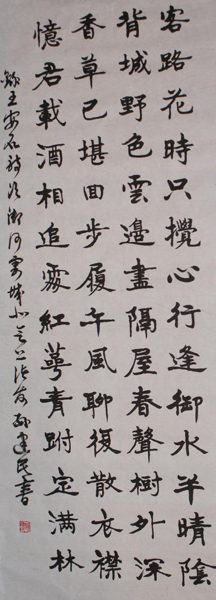 客路花時只攪心行逢御水半晴陰
背城野色雲邊盡隔屋春聲樹外深
香草已堪回步履午風聊復散衣襟
憶君載酒相追處紅萼青跗定满林
録王安石詩次御河寄城北会上诸友孙建民書